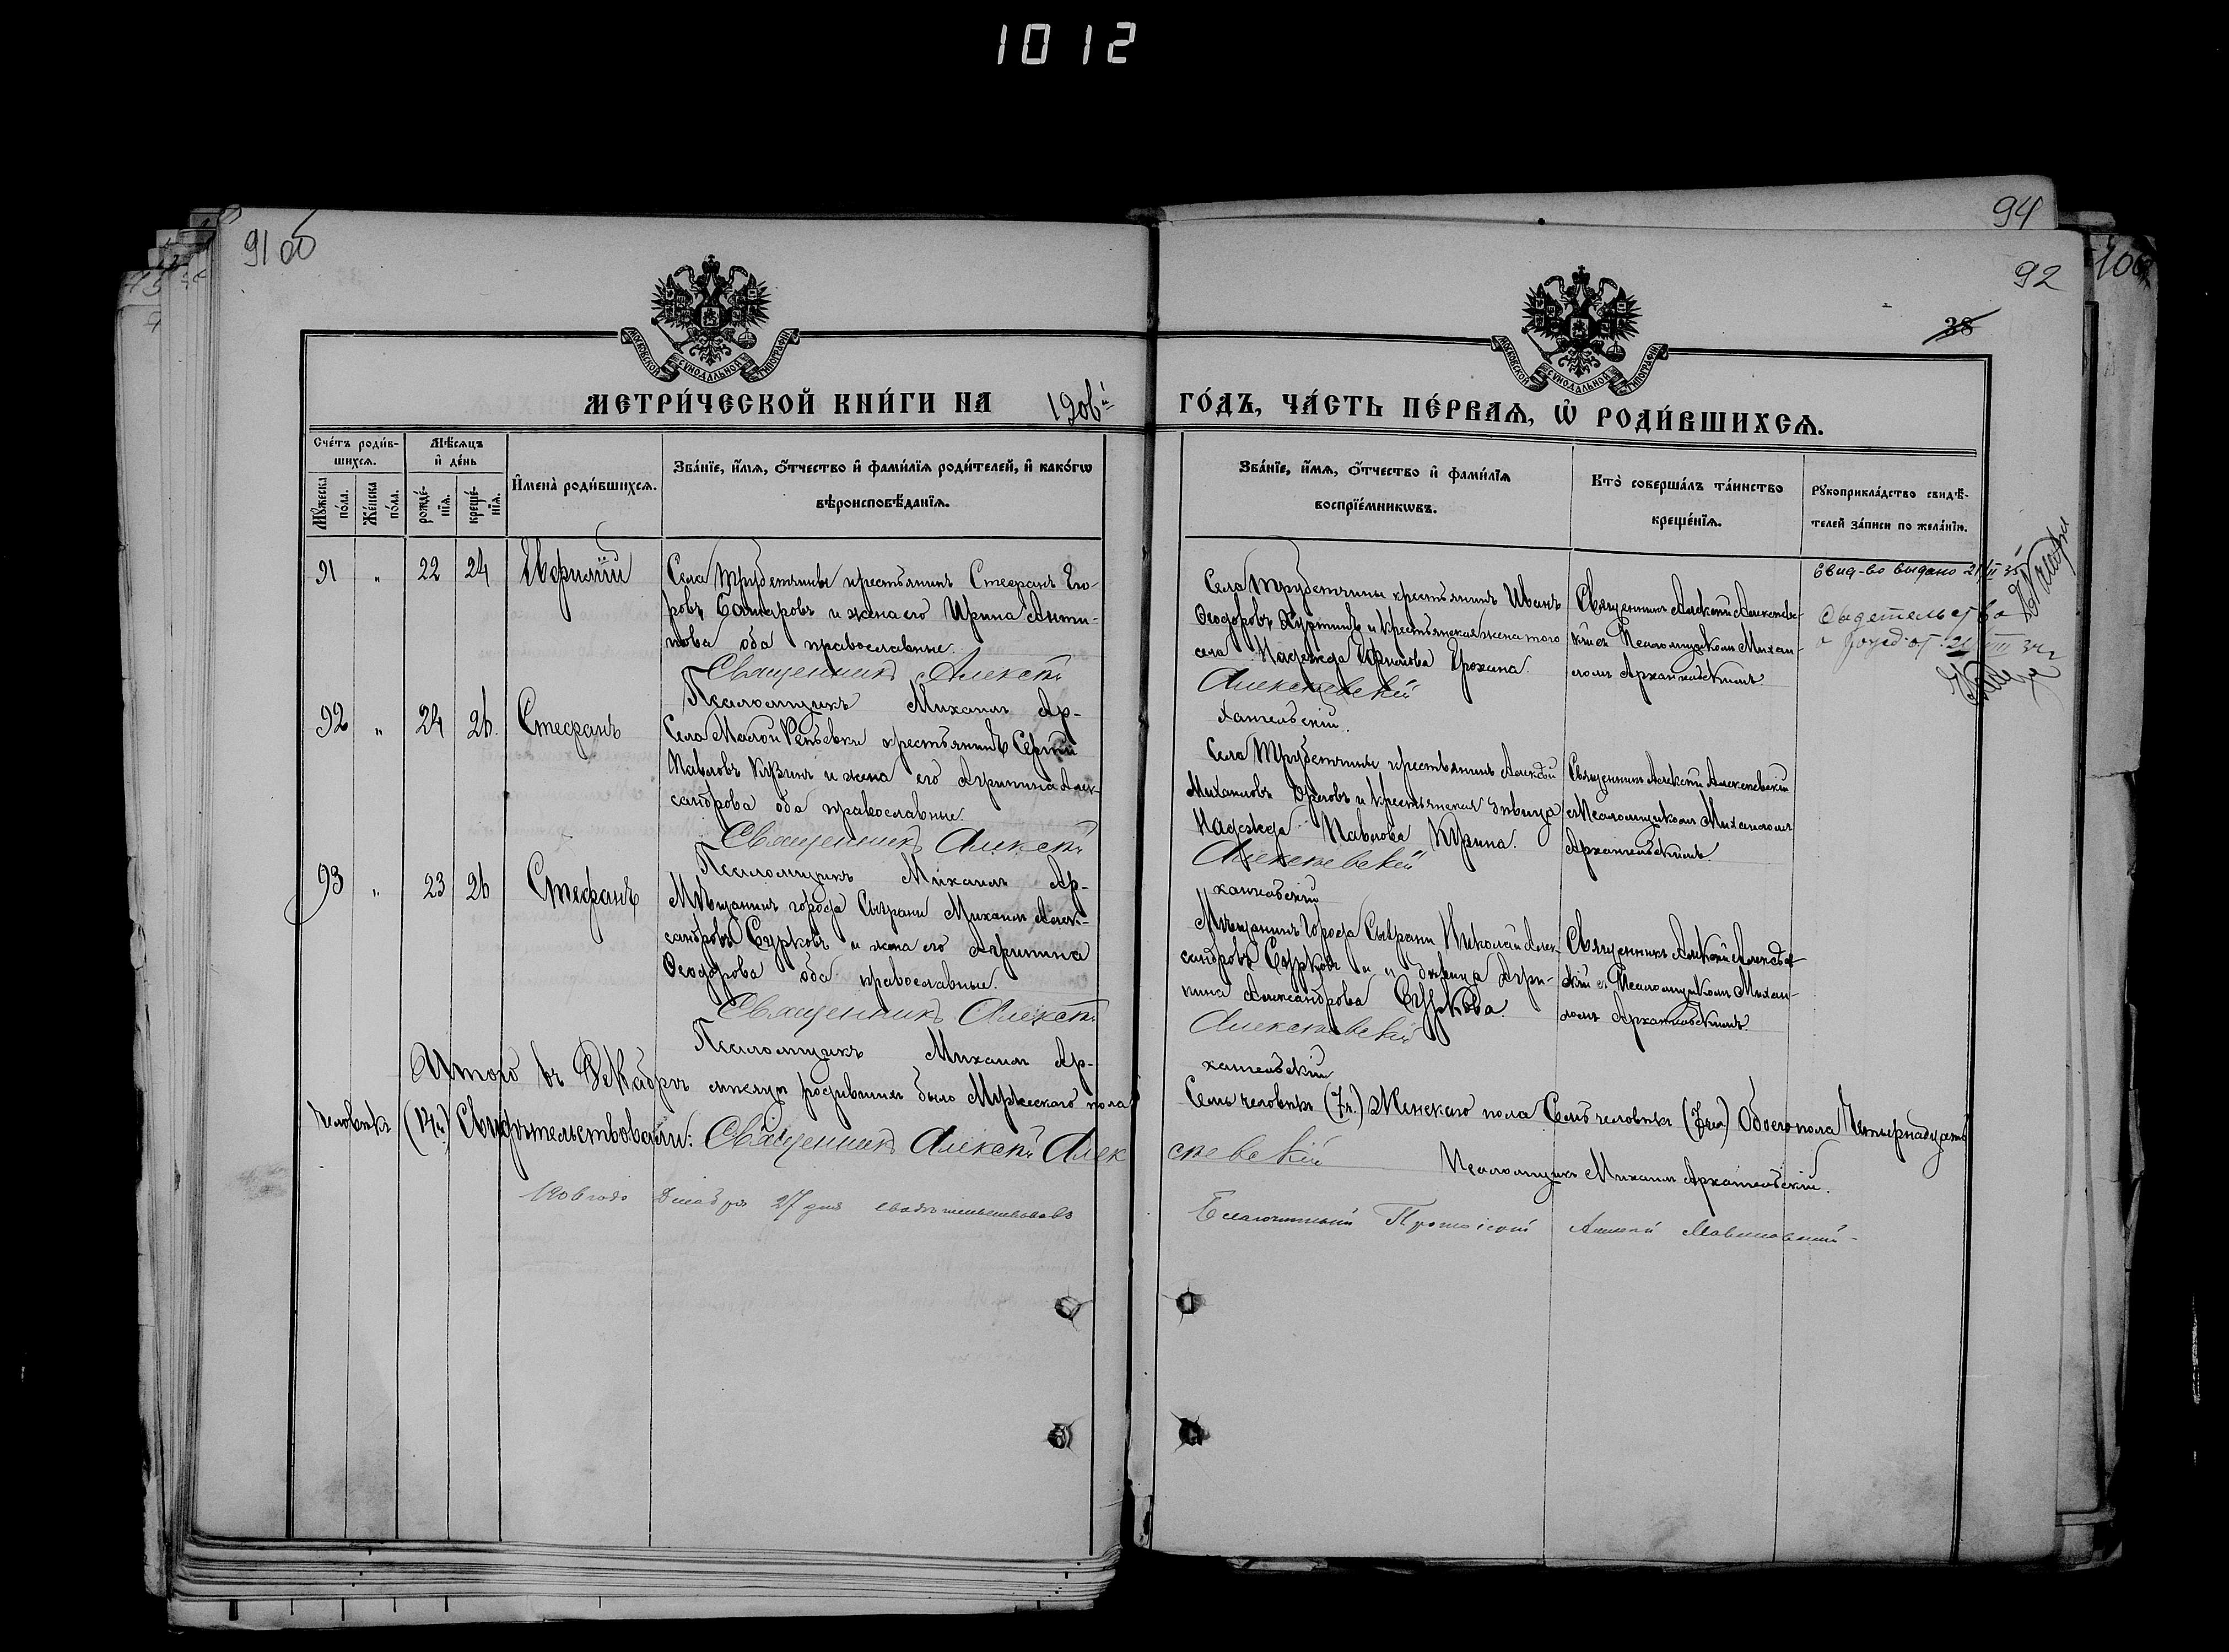 1012
94
91 об
92
100
38
МОСКОВСКОЙ СѴНОДАЛЬНОЙ ТИПОГРАФІИ
МОСКОВСКОЙ СѴНОДАЛЬНОЙ ТИПОГРАФІИ
МЕТРИ́ЧЕСКОЙ КНИ́ГИ НА 1906й
ГО́ДЪ, ЧА́СТЬ ПЕ́РВАѦ, Ѡ҆ РОДИ́ВШИХСѦ.
Сче́тъ роди́в-
шихсѧ.
Мꙋ́жеска по́ла.
Же́нска по́ла.
Мѣ́сѧцъ
и҆ де́нь
рожде́-
нїѧ.
креще́-
нїѧ.
И҆мена̀ роди́вшихсѧ.
Зва́нїе, и҆́мѧ, ѻ҆́тчество и҆ фами́лїѧ роди́телей, и҆ како́гѡ
вѣроисповѣ́данїѧ.
Зва́нїе, и҆́мѧ, ѻ҆́тчество и҆ фами́лїѧ
воспрїе́мникѡвъ.
Кто̀ соверша́лъ та́инство
креще́нїѧ.
Рꙋкоприкла́дство свидѣ́-
телей за́писи по жела́нїю.
91 " 22 24
Села Трубетчины крестьянинъ Стефанъ Его-
ровъ и жена его Ирина Анти-
пова оба православные.
Священникъ Алексѣй
Псаломщикъ Михаилъ Ар-
Села Трубетчины крестьянинъ Иванъ
Ѳеодоровъ и крестьянская жена того
села Надежда Ерохина.
Алексѣевскій
хангельскій
Священникъ Алексѣй Алексѣевс-
кій съ Псаломщикомъ Михаи-
ломъ Архангельскимъ.
Свид-во выдано 21/II 35
92 " 24 26. Стефанъ
Села Малой Репьевки крестьянинъ Сергѣй
Павловъ Кузинъ и жена его Агрипина Алек-
сандрова оба православные.
Священникъ Алексѣй
Псаломщикъ Михаилъ Ар-
Села Трубетчины крестьянинъ Алексѣй
Михаиловъ и крестьянская дѣвица
Надежда Павлова
Алексѣевскій
хангельскій
Священникъ Алексѣй Алексѣевскій
съ Псаломщикомъ Михаиломъ
Архангельскимъ.
93 " 23 26 Стефанъ
Мѣщанинъ города Сызрани Михаилъ Алек-
сандровъ Сурковъ и жена его Агрипина
Ѳеодорова оба православные.
Священникъ Алексѣй
Псаломщикъ Михаилъ Ар-
Мѣщанинъ города Сызрани Николай Алек-
сандровъ Сурковъ и " дѣвица Агри-
пина Александрова Суркова.
Алексѣевскій
хангельскій
Священникъ Алексѣй Алексѣевс-
кій съ Псаломщикомъ Михаи-
ломъ Архангельскимъ.
Итого въ Декабрѣ мѣсяцѣ родившихъ было Мужескаго пола Семь человѣкъ (7 ч.) Женскаго пола Семь человѣкъ (7 ч.) Обоего пола Четырнадцать
человѣкъ (14 ч.) Свидѣтельствовали: Священникъ Алексѣй Алек
сѣевскій
Псаломщикъ Михаилъ Архангельскій.
1906 года Декабря 27 дня свидѣтельствовалъ Благочинный Протоіерей Алексѣй